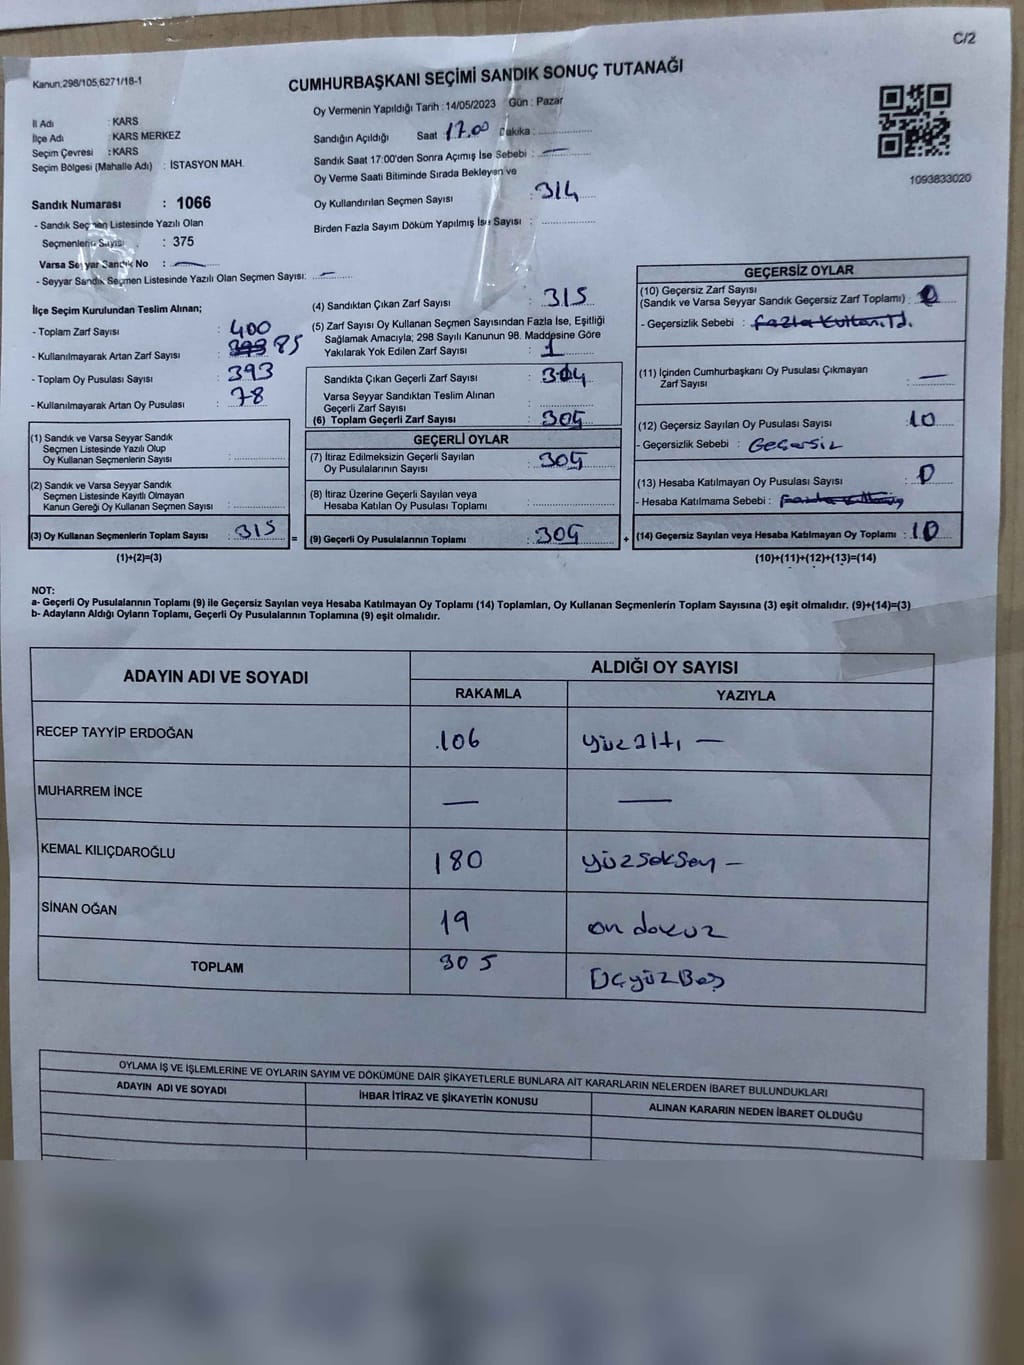 C/2
Kanun,298/105,6271/18-1
CUMHURBAŞKANI SEÇİMİ SANDIK SONUÇ TUTANAĞI
Oy Vermenin Yapıldığı Tarih : 14/05/2023 Gün : Pazar
İl Adı : KARS
İlçe Adı : KARS MERKEZ
Seçim Çevresi : KARS
Seçim Bölgesi (Mahalle Adı) : İSTASYON MAH.
Sandığın Açıldığı Saat 17.00 Dakika :
Sandık Saat 17:00'den Sonra Açımış İse Sebebi : —
Oy Verme Saati Bitiminde Sırada Bekleyen ve
Oy Kullandırılan Seçmen Sayısı : 314
Birden Fazla Sayım Döküm Yapılmış İse Sayısı :
1093833020
Sandık Numarası : 1066
- Sandık Seçmen Listesinde Yazılı Olan
Seçmenlerin Sayısı : 375
Varsa Seyyar Sandık No : —
- Seyyar Sandık Seçmen Listesinde Yazılı Olan Seçmen Sayısı: —
İlçe Seçim Kurulundan Teslim Alınan;
- Toplam Zarf Sayısı : 400
- Kullanılmayarak Artan Zarf Sayısı : 393 85
- Toplam Oy Pusulası Sayısı : 393
- Kullanılmayarak Artan Oy Pusulası : 78
(1) Sandık ve Varsa Seyyar Sandık
Seçmen Listesinde Yazılı Olup
Oy Kullanan Seçmenlerin Sayısı :
(2) Sandık ve Varsa Seyyar Sandık
Seçmen Listesinde Kayıtlı Olmayan
Kanun Gereği Oy Kullanan Seçmen Sayısı :
(3) Oy Kullanan Seçmenlerin Toplam Sayısı : 315 =
(1)+(2)=(3)
(4) Sandıktan Çıkan Zarf Sayısı : 315
(5) Zarf Sayısı Oy Kullanan Seçmen Sayısından Fazla İse, Eşitliği
Sağlamak Amacıyla; 298 Sayılı Kanunun 98. Maddesine Göre
Yakılarak Yok Edilen Zarf Sayısı : 1
Sandıkta Çıkan Geçerli Zarf Sayısı : 314
Varsa Seyyar Sandıktan Teslim Alınan
Geçerli Zarf Sayısı :
(6) Toplam Geçerli Zarf Sayısı : 305
GEÇERLİ OYLAR
(7) İtiraz Edilmeksizin Geçerli Sayılan
Oy Pusulalarının Sayısı : 305
(8) İtiraz Üzerine Geçerli Sayılan veya
Hesaba Katılan Oy Pusulası Toplamı :
(9) Geçerli Oy Pusulalarının Toplamı : 305 +
GEÇERSİZ OYLAR
(10) Geçersiz Zarf Sayısı
(Sandık ve Varsa Seyyar Sandık Geçersiz Zarf Toplamı) : 0
- Geçersizlik Sebebi :
(11) İçinden Cumhurbaşkanı Oy Pusulası Çıkmayan
Zarf Sayısı : —
(12) Geçersiz Sayılan Oy Pusulası Sayısı : 10
- Geçersizlik Sebebi : Geçersiz
(13) Hesaba Katılmayan Oy Pusulası Sayısı : 0
- Hesaba Katılmama Sebebi :
(14) Geçersiz Sayılan veya Hesaba Katılmayan Oy Toplamı : 10
(10)+(11)+(12)+(13)=(14)
NOT:
a- Geçerli Oy Pusulalarının Toplamı (9) ile Geçersiz Sayılan veya Hesaba Katılmayan Oy Toplamı (14) Toplamları, Oy Kullanan Seçmenlerin Toplam Sayısına (3) eşit olmalıdır. (9)+(14)=(3)
b- Adayların Aldığı Oyların Toplamı, Geçerli Oy Pusulalarının Toplamına (9) eşit olmalıdır.
ADAYIN ADI VE SOYADI
ALDIĞI OY SAYISI
RAKAMLA YAZIYLA
RECEP TAYYİP ERDOĞAN 106 yüzaltı —
MUHARREM İNCE — —
KEMAL KILIÇDAROĞLU 180 yüzseksen —
SİNAN OĞAN 19 on dokuz
TOPLAM 305 ÜçyüzBeş
OYLAMA İŞ VE İŞLEMLERİNE VE OYLARIN SAYIM VE DÖKÜMÜNE DAİR ŞİKAYETLERLE BUNLARA AİT KARARLARIN NELERDEN İBARET BULUNDUKLARI
ADAYIN ADI VE SOYADI İHBAR İTİRAZ VE ŞİKAYETİN KONUSU ALINAN KARARIN NEDEN İBARET OLDUĞU